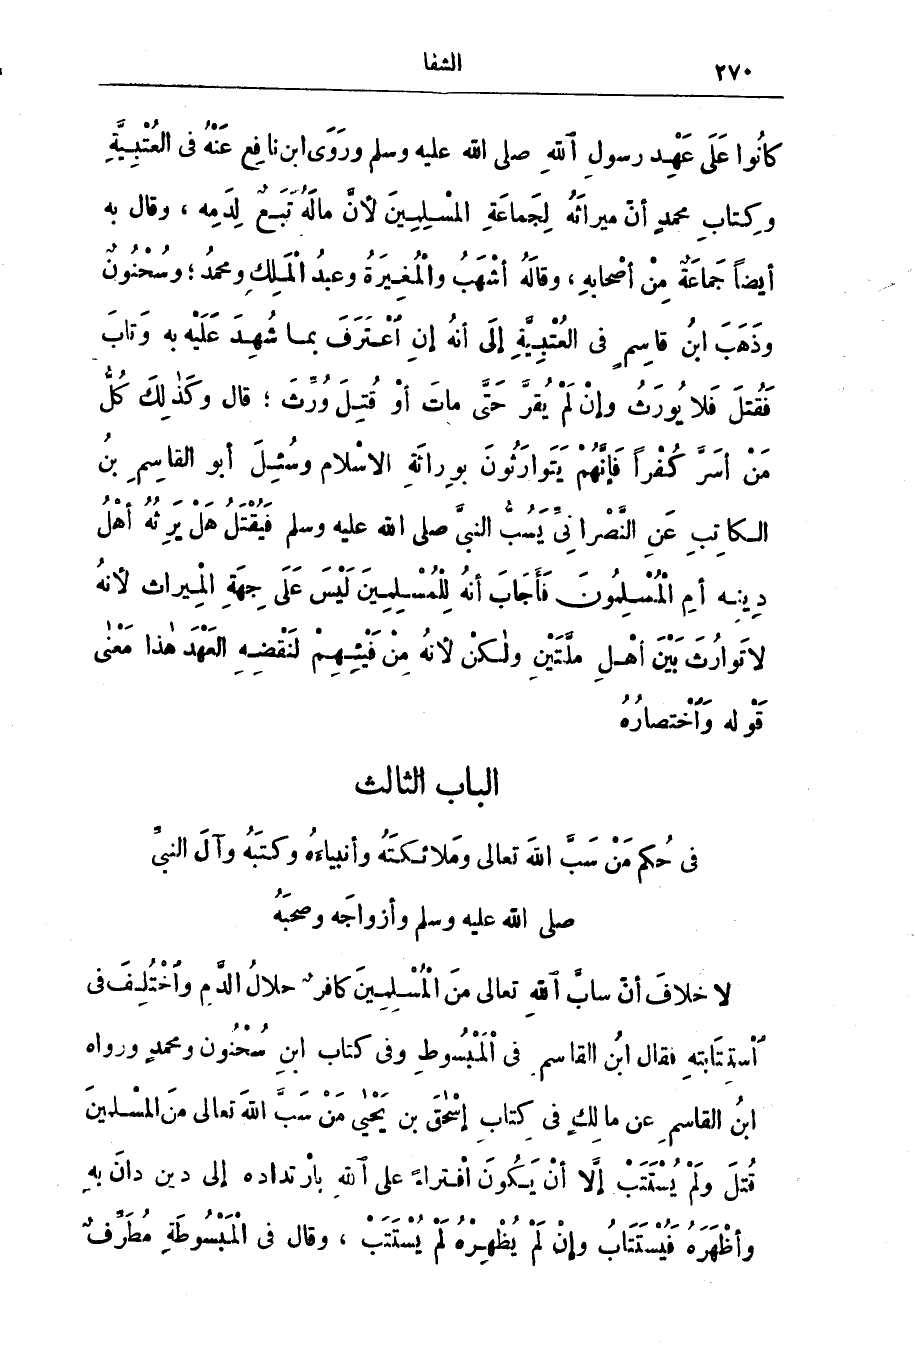 ٢٧٠
الشفا
كانُوا عَلَى عَهْدِ رسولِ ٱللهِ صلى الله عليه وسلم ورَوَى ابن نافِعٍ عَنْهُ فى العُتْبِيَّةِ
وكِتابِ محمدٍ أنّ ميراثَهُ لِجَماعَةِ المسْلِمِينَ لأنَّ مالَهُ تَبَعٌ لِدَمِه ، وقال به
أيضاً جَماعَةٌ مِنْ أصْحابِهِ ، وقالَهُ أشْهَبُ والْمُغِيَرةُ وعبدُ الْمَلِكِ ومحمدُ ؛ وسُحْنُونٌ
وذَهَبَ ابنُ قاسِمٍ فى العُتْبِيَّةِ إلَى أنهُ إن ٱعْتَرَفَ بمـا شُهِدَ عَلَيْه به وَتابَ
فَقُتلَ فَلا يُورَثُ وإنْ لَمْ يُقرَّ حَتَّى ماتَ أوْ قُتِـلَ وُرِّثَ ؛ قال وكَذٰلِكَ كُلُّ
مَنْ أسَرَّ كُفْراً فَإنَّهُمْ يَتَوارَثُونَ بوِراثَةِ الاسْلام وسُئِـلَ أبو القاسِمِ بنُ
الـكاتِبِ عَنِ النَّصْرانِىِّ يَسُبُّ النبىَّ صلى الله عليه وسلم فَيُقْتَلُ هَلْ يَرِثُهُ أهْلُ
دِينِـه أمِ الْمُسْلِمُونَ فَأَجابَ أنهُ لِلْمُسْـلِمِينَ لَيْسَ عَلَى جِهَةِ الْمِيراث لأنهُ
لاتَوارُثَ بَيْنَ أهْـلِ ملَّتَيْنِ ولٰـكنْ لأنهُ مِنْ فَيْئِـهِـمْ لنَقْضِـهِ العَهْدَ هٰذا مَعْنٰى
قَوْلِه وَٱخْتصارُهُ
الباب الثالث
فى حُكمِ مَنْ سَبَّ اللهَ تعالى ومَلائـكتَهُ وأنبياءهُ وكتبَهُ وآلَ النبىِّ
صلى الله عليه وسلم وأزواجَه وصحبَهُ
لا خلافَ أنّ سابَّ ٱللهِ تعالى منَ الْمُسْـلِمِـينَ كافرٌ حلالُ الدَّمِ وٱخْتُلِـفَ فى
ٱسْتِتَابَتهِ فقال ابنُ القاسمِ فى الْمَبْسُوطِ وفى كتاب ابنِ سُحْنُون ومحمدٍ ورواه
ابنُ القاسمِ عن مالِكٍ فى كِتابِ إسْحٰقَ بن يَحْيٰى مَنْ سَبَّ اللهَ تعالى منَ المسْلمينَ
قُتلَ ولَمْ يُسْتَتَبْ إلَّا أنْ يَـكُونَ ٱفْتراءً على ٱللهِ بارْتداده إلى دين دانَ بهِ
وأظْهَرَهُ فَيُسْتَتَابُ وإنْ لَمْ يُظْهِـرْهُ لَمْ يُسْتَتَبْ ، وقال فى الْمَبْسُوطَةِ مُطَرِّفٌ